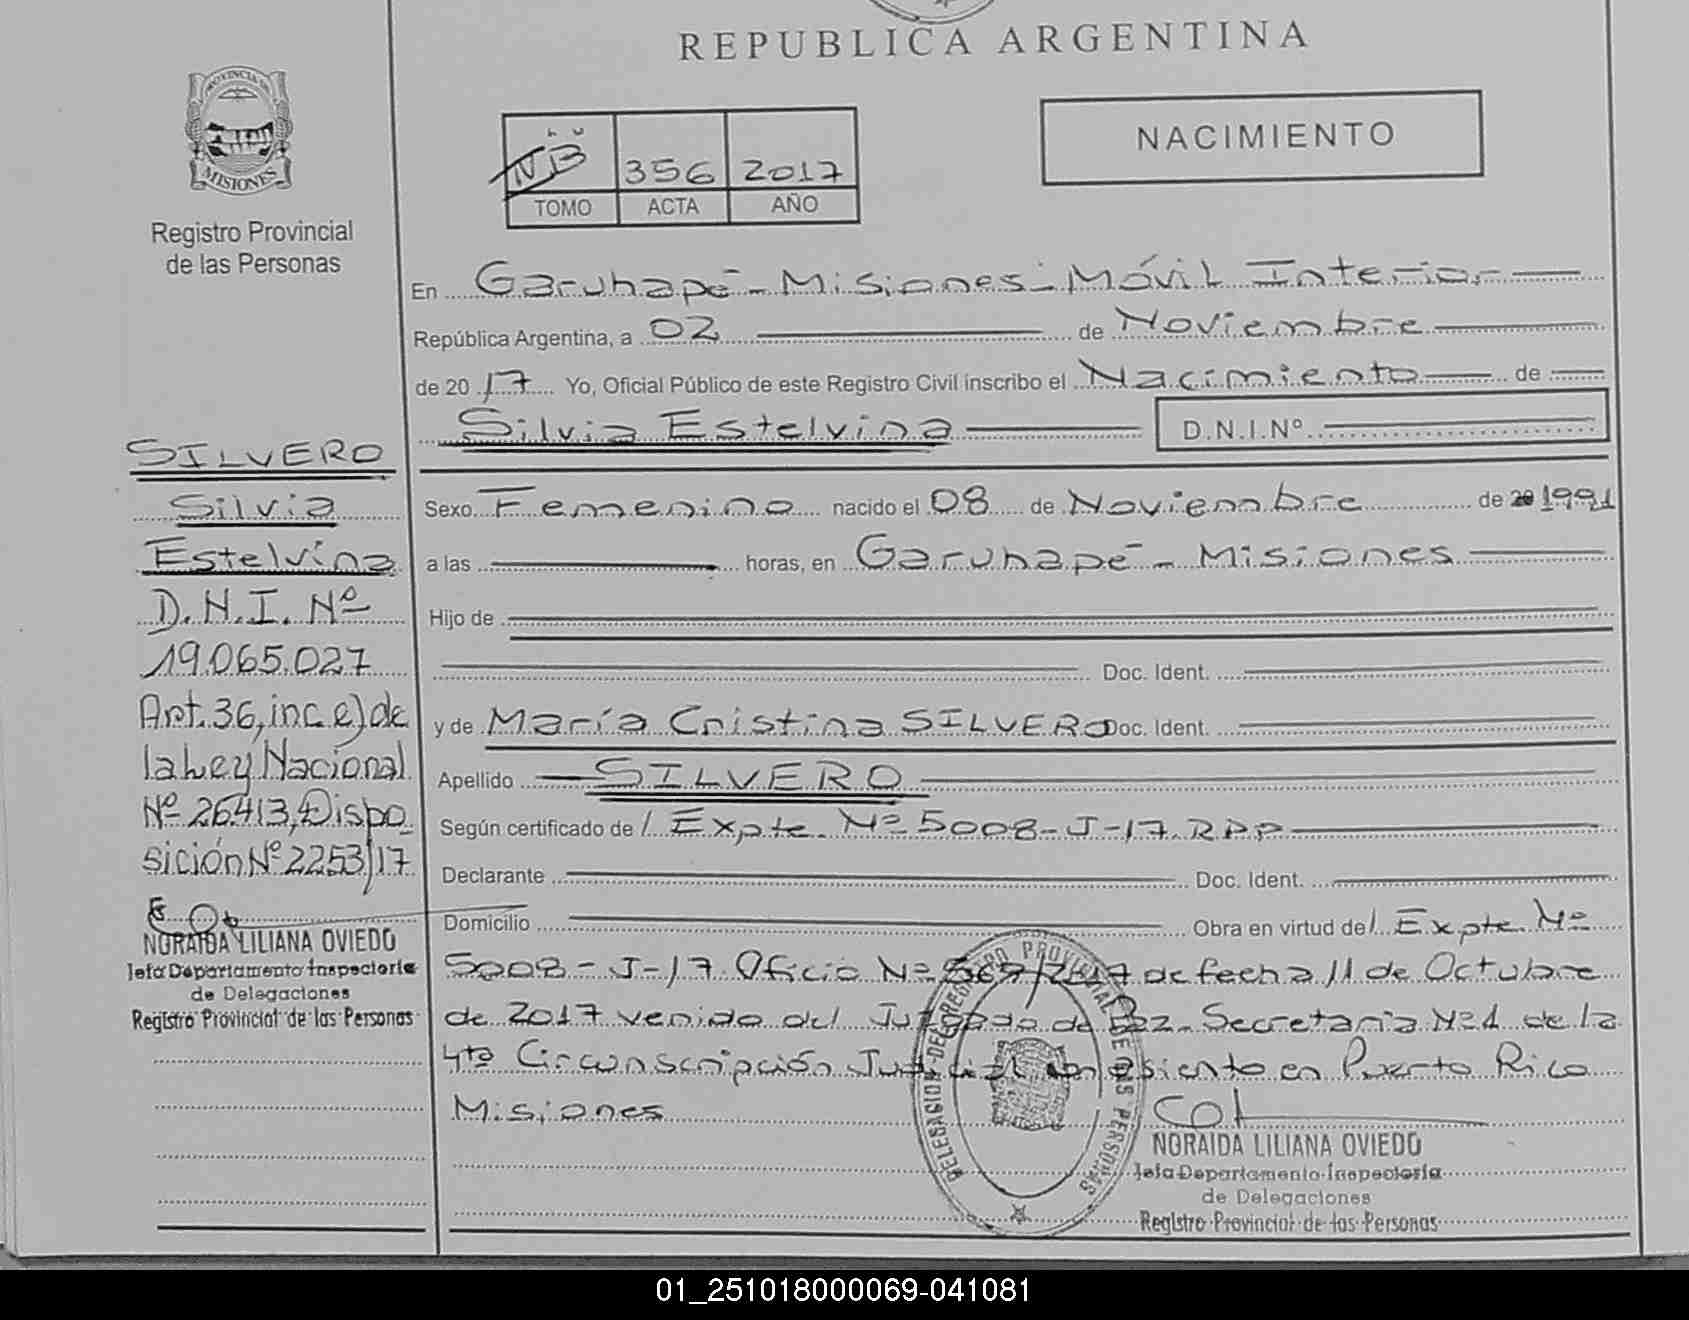 REPUBLICA ARGENTINA
PROVINCIA DE
MISIONES
Registro Provincial
de las Personas
356 2017
TOMO ACTA AÑO
NACIMIENTO
En Garuhapé - Misiones - Móvil Interior
República Argentina, a 02 de Noviembre
de 2017 Yo, Oficial Público de este Registro Civil inscribo el Nacimiento de
Silvia Estelvina D.N.I.Nº
Sexo Femenino nacido el 08 de Noviembre de 1991
a las horas, en Garuhapé - Misiones
Hijo de
Doc. Ident.
y de María Cristina SILVERO Doc. Ident.
Apellido SILVERO
Según certificado de / Expte. Nº 5008-J-17 RPP
Declarante Doc. Ident.
Domicilio Obra en virtud de / Expte. Nº
5008-J-17 Oficio Nº /2017 de fecha 11 de Octubre
de 2017 venido del Juzgado de Paz - Secretaria Nº1 de la
4ta Circunscripción Judicial con asiento en Puerto Rico
Misiones
NORAIDA LILIANA OVIEDO
Jefa Departamento Inspectoria
de Delegaciones
Registro Provincial de las Personas
SILVERO
Silvia
Estelvina
D.N.I. Nº
19.065.027
Art. 36, inc e) de
la Ley Nacional
Nº 26413, Dispo
sición Nº 2253/17
NORAIDA LILIANA OVIEDO
Jefa Departamento Inspectoria
de Delegaciones
Registro Provincial de las Personas
01_251018000069-041081